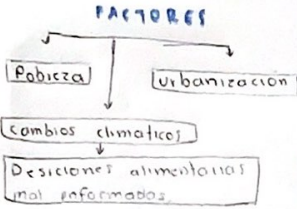 FACTORES
Pobreza
urbanización
cambios climaticos
Desiciones alimentarias
mal enformados